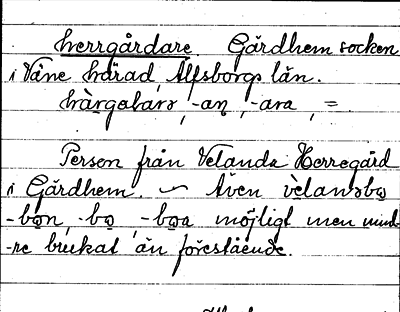 herrgårdare. Gärdhem socken
i Väne härad, Älfsborgs län.
hàrgalarə, -an, -ara, =.
Person från Velanda Herregård
i Gärdhem. ∽ Även vèlansbo̤
-bo̤n, -bo̤, -bo̤a möjligt men mind-
-re brukat än förestående.